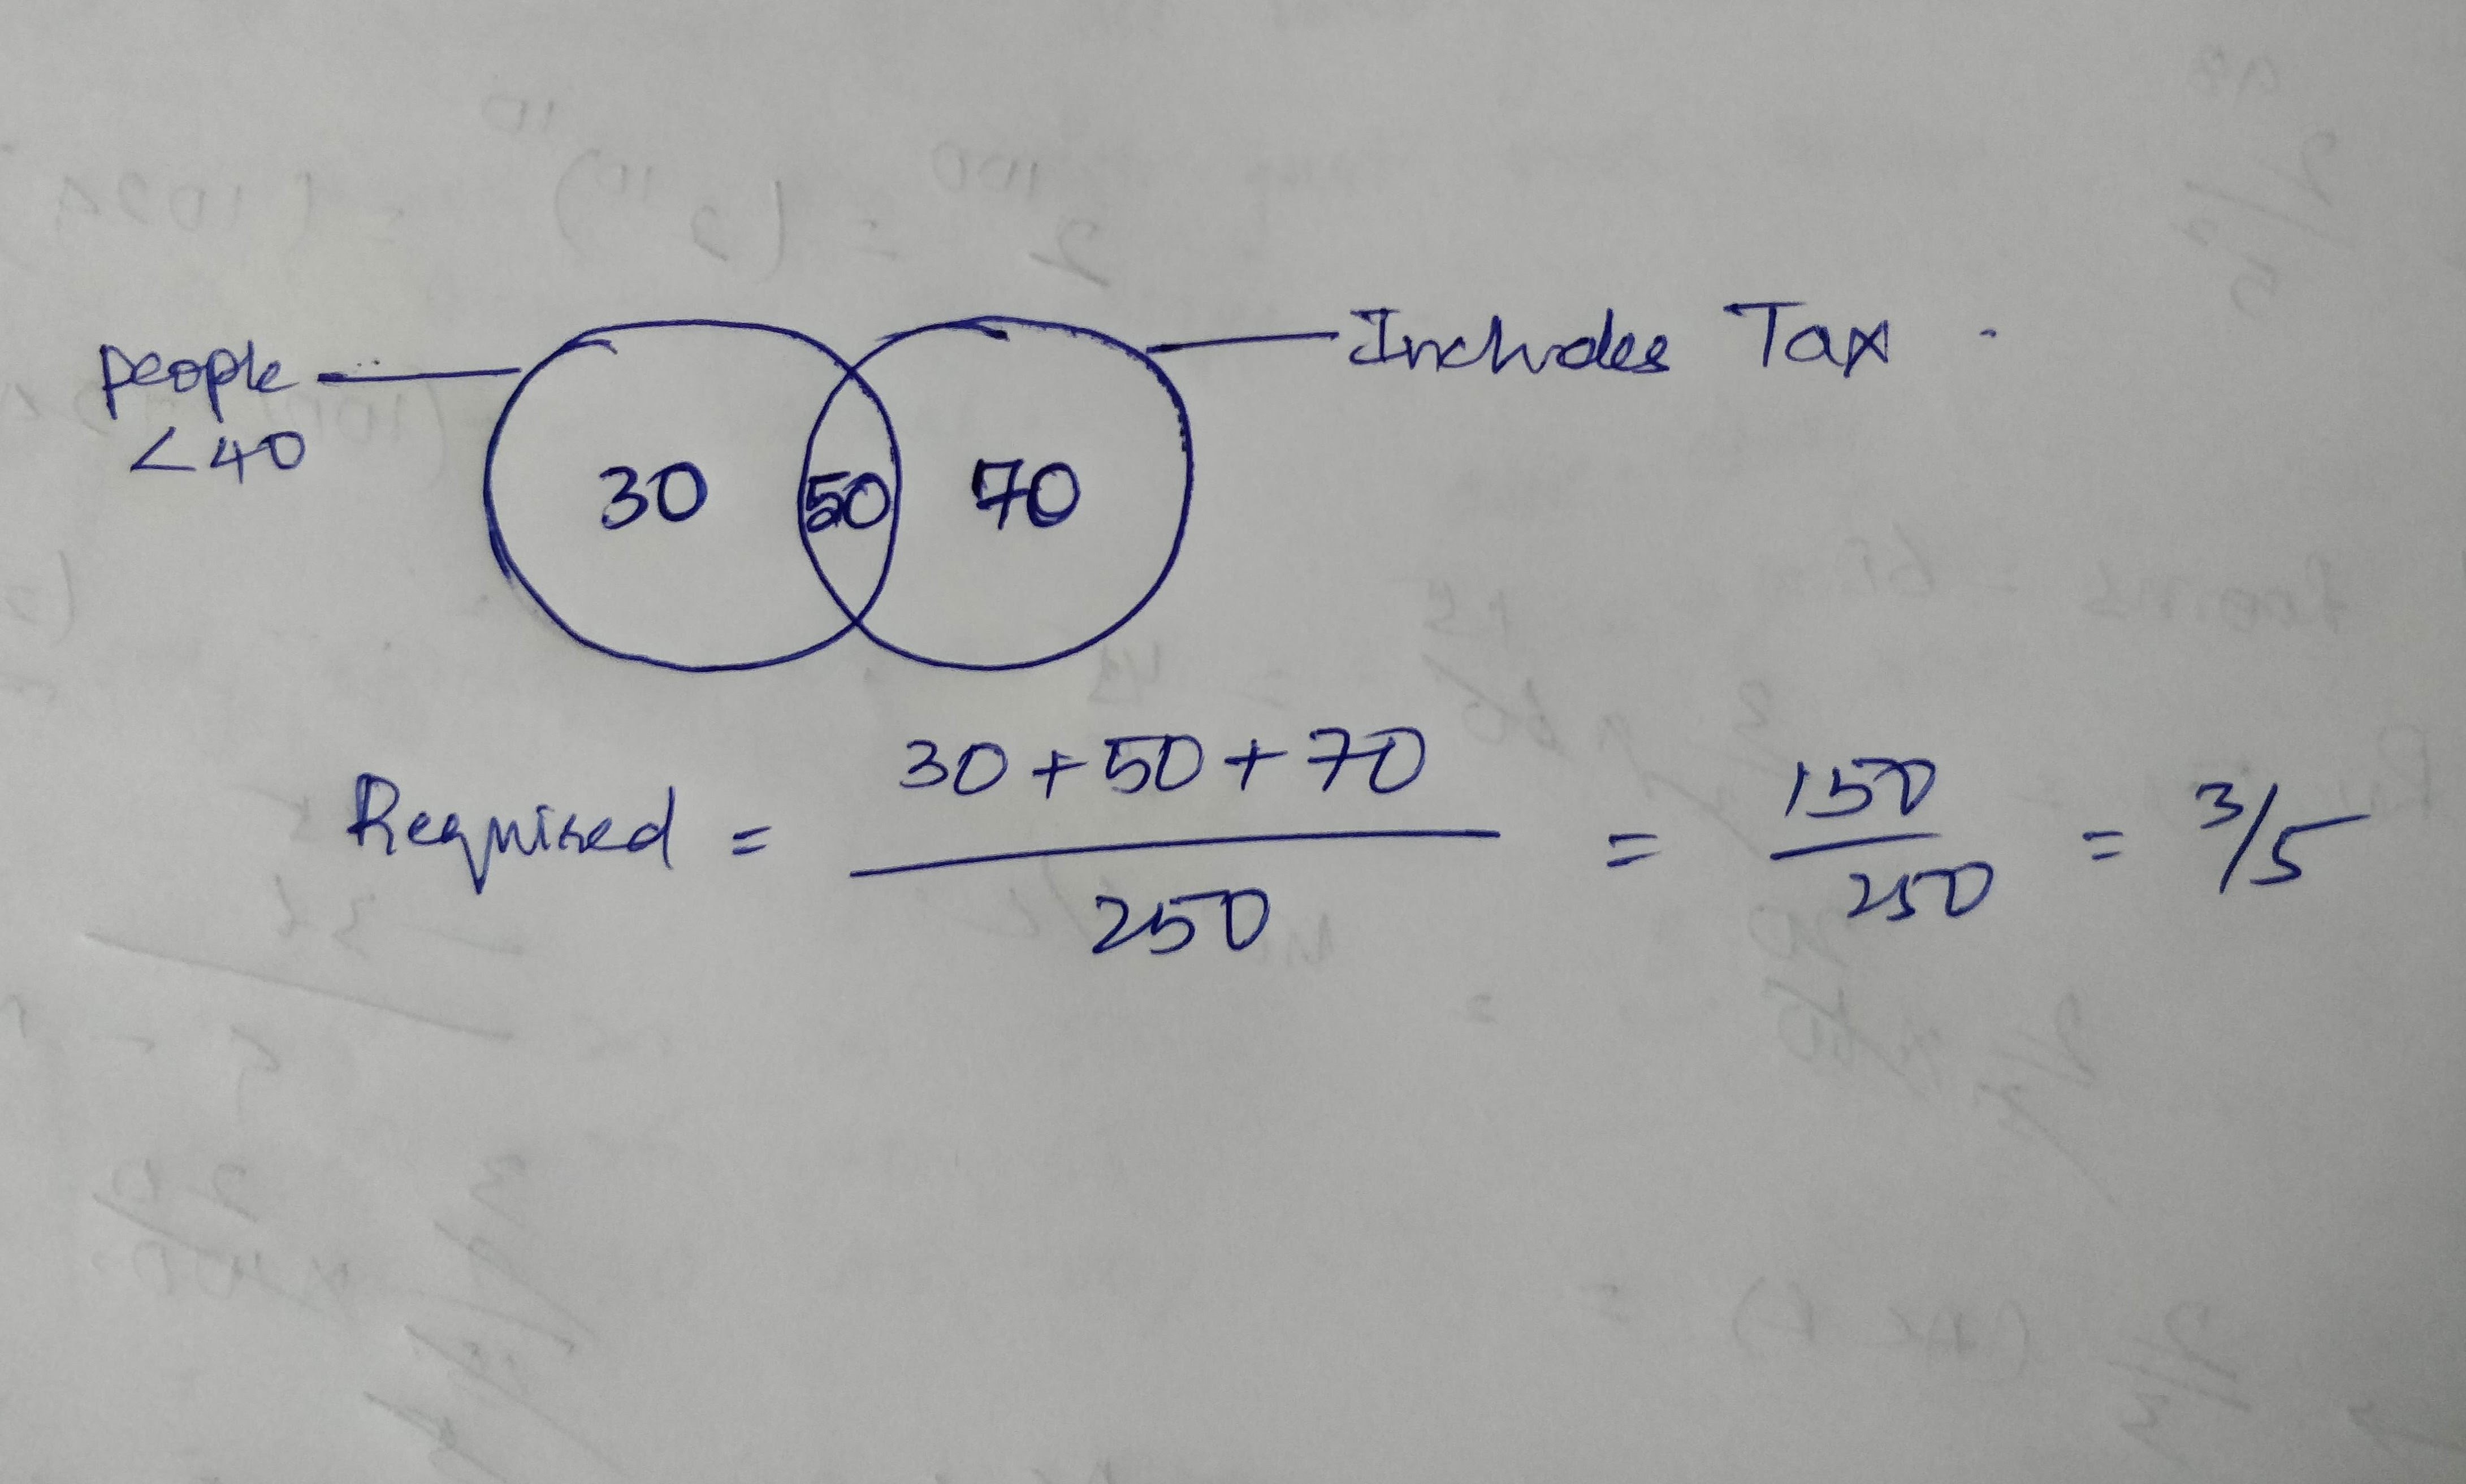 people
<40
Includes Tax .
30 50 70
Required = 30 + 50 + 70 / 250 = 150 / 250 = 3/5